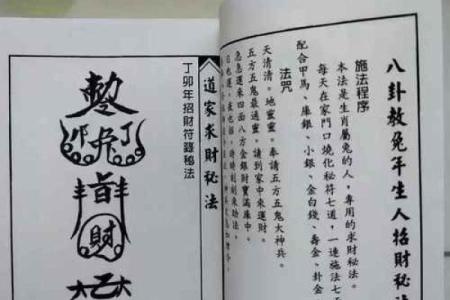 八卦教兔年生人招財秘
施法程序
本法是生肖屬兔的人，專用的求財秘法。
每天在家門口燒化秘符七道，一連施法七
配合甲馬、庫銀、小銀、金白錢、壽金、卦金
法咒
天清清。地靈靈。奉請五方五鬼大神兵。
五方五鬼最通靈。請到家中來運財。
急急運來四面八方金銀財寶滿庫中。
日也運，夜也招，時時刻刻來助法。
道家求財秘法
丁卯年招財符籙秘法
丁兔卯
財